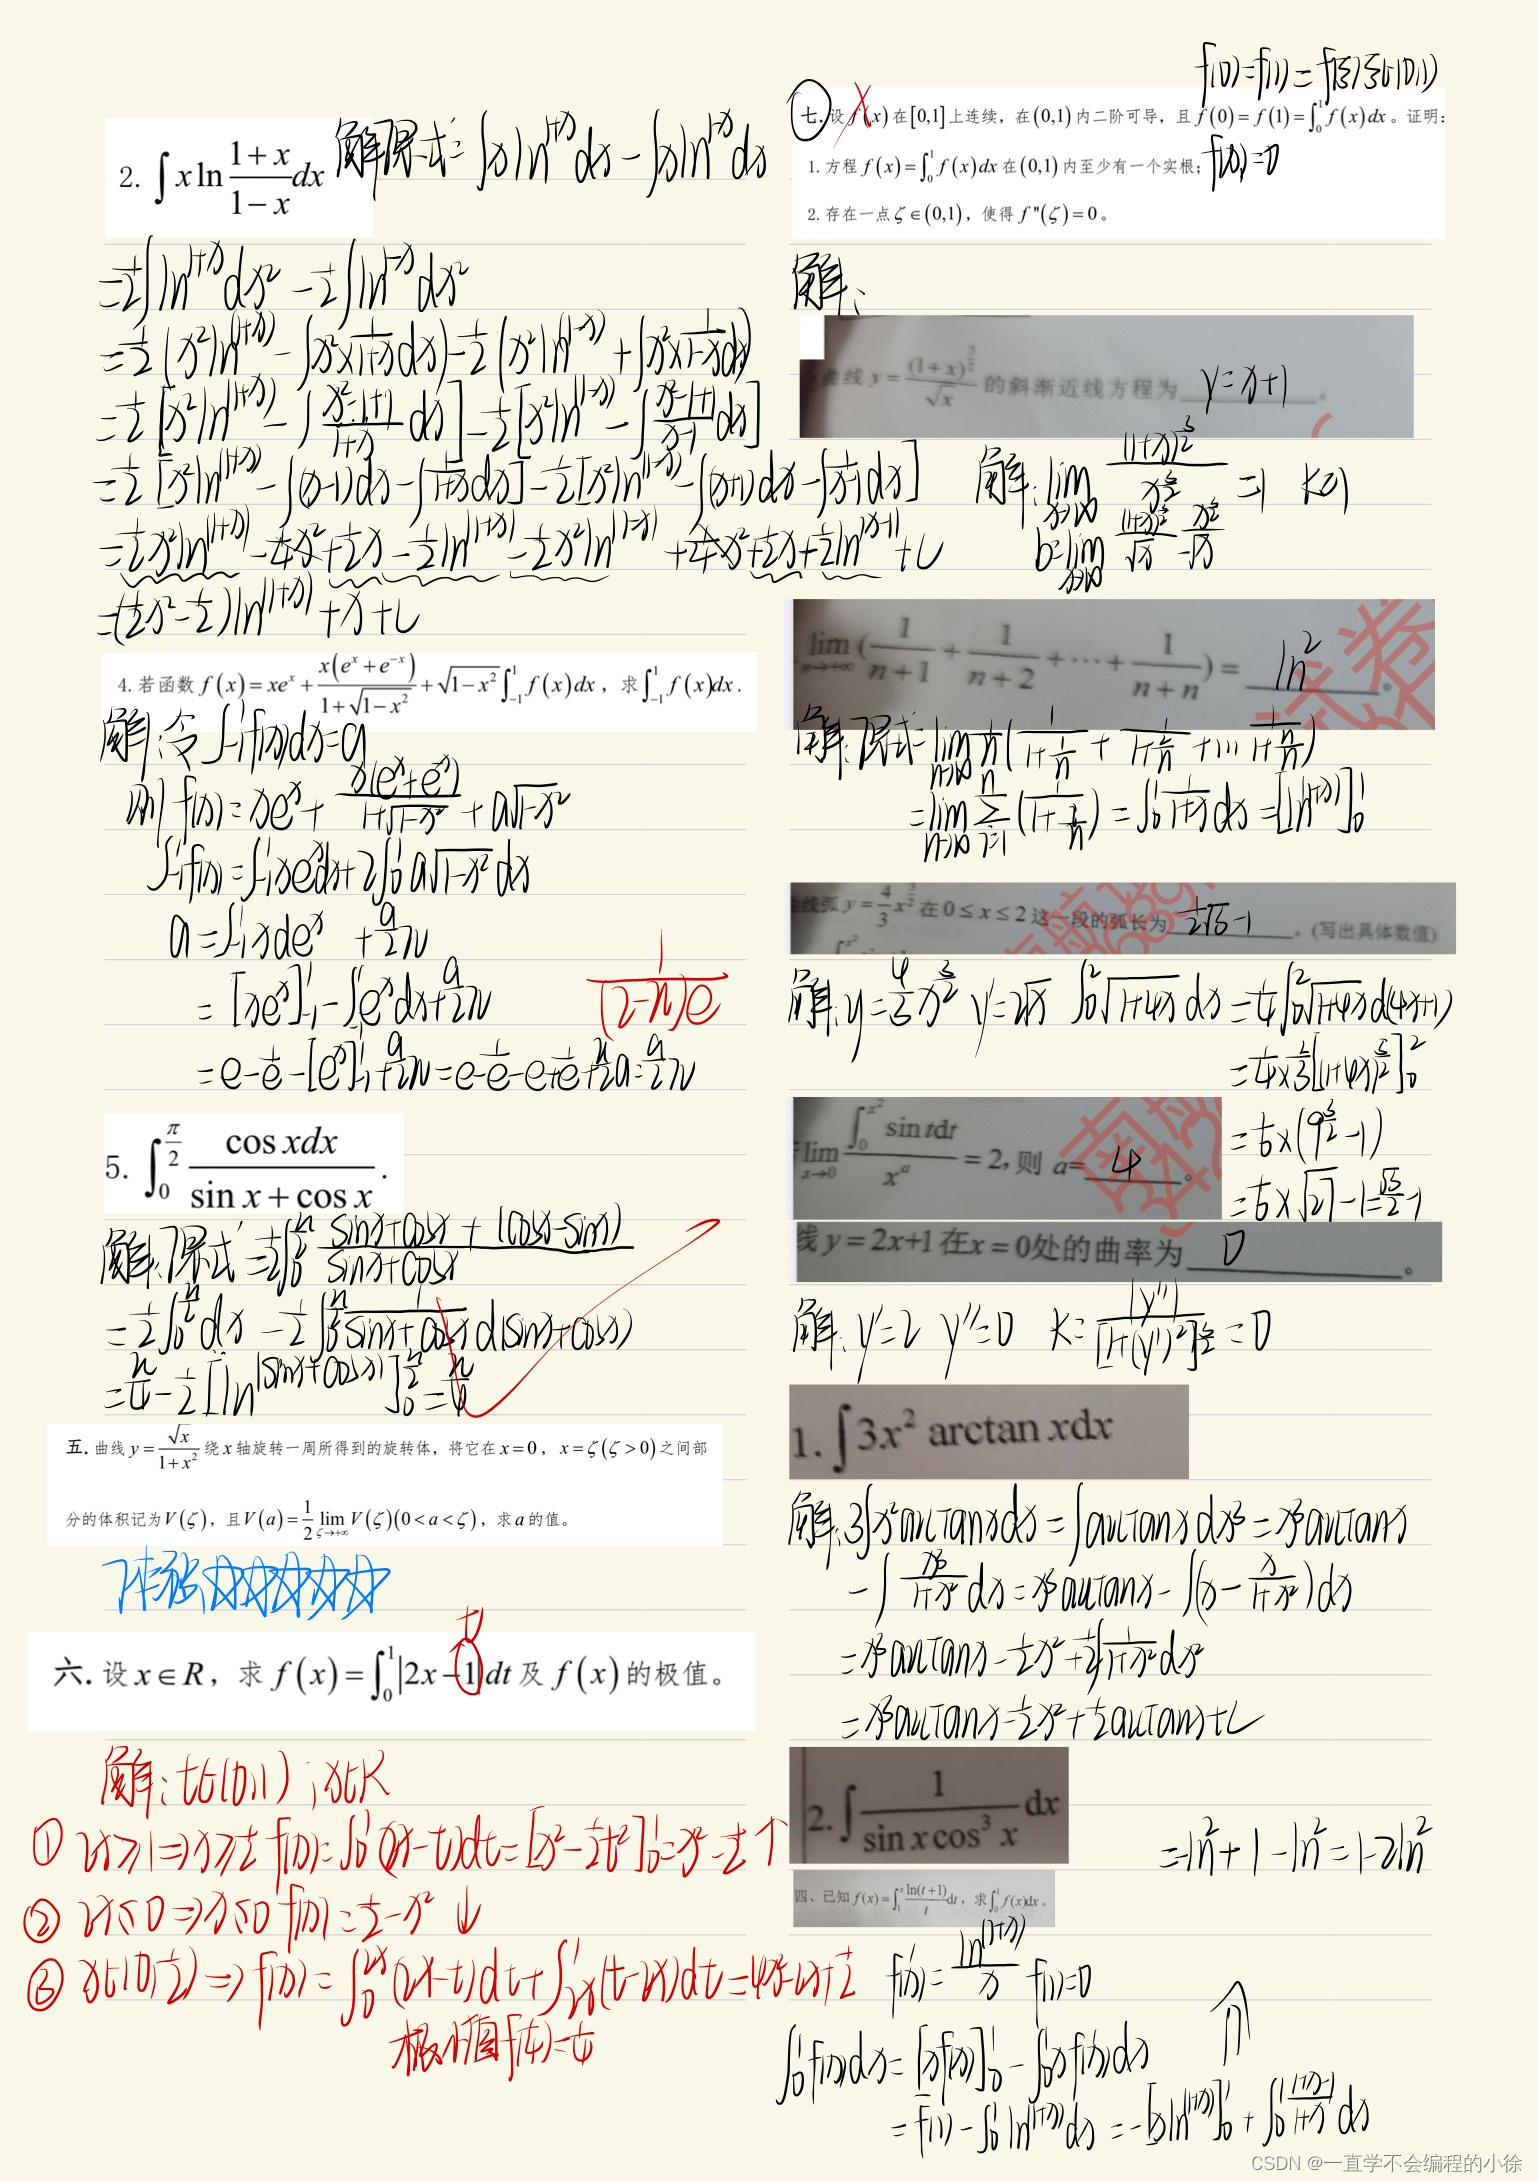 2. ∫ x ln (1+x)/(1−x) dx
解:原式=∫xln^(1+x)dx − ∫xln^(1-x)dx
=½∫ln^(1+x)dx² − ½∫ln^(1-x)dx²
=½(x²ln^(1+x) − ∫x²×1/(1+x)dx) − ½(x²ln^(1-x) + ∫x²×1/(1-x)dx)
=½[x²ln^(1+x) − ∫(x²-1+1)/(1+x) dx] − ½[x²ln^(1-x) − ∫(x²-1+1)/(x-1) dx]
=½[x²ln^(1+x) − ∫(x-1)dx − ∫1/(1+x)dx] − ½[x²ln^(1-x) − ∫(x+1)dx − ∫1/(x-1)dx]
=½x²ln^(1+x) − ¼x² + ½x − ½ln^(1+x) − ½x²ln^(1-x) + ¼x² + ½x + ½ln^(x-1) + C
=(½x²−½)ln^(1+x) + x + C
4. 若函数 f(x)=xe^x + x(e^x+e^(−x))/(1+√(1−x²)) + √(1−x²)∫_{-1}^{1} f(x)dx, 求∫_{-1}^{1} f(x)dx.
解:令∫_{-1}^{1}f(x)dx=a
则 f(x)=xe^x + x(e^x+e^-x)/(1+√(1-x²)) + a√(1-x²)
∫_{-1}^{1}f(x)=∫_{-1}^{1}xe^xdx+2∫_0^1 a√(1-x²)dx
a=∫_{-1}^{1}xde^x + a/2 π
=[xe^x]_{-1}^{1} − ∫e^xdx + a/2 π
1/((2-π)e)
=e-1/e −[e^x]_{-1}^{1} + a/2 π = e-1/e-e+1/e+π/2 a = a/2 π
5. ∫_0^{π/2} cos xdx/(sin x+cos x).
解:原式=½∫_0^{π/2} (sinx+cosx+(cosx-sinx))/(sinx+cosx)
=½∫_0^{π/2}dx − ½∫_0^{π/2} 1/(sinx+cosx) d(sinx+cosx)
=π/4 − ½[ln^(sinx+cosx)]_0^{π/2} = π/4
五. 曲线 y=√x/(1+x²) 绕 x 轴旋转一周所得到的旋转体，将它在 x=0，x=ζ(ζ>0)之间部
分的体积记为V(ζ)，且V(a)=½ lim_{ζ→+∞} V(ζ)(0<a<ζ)，求a的值。
六. 设 x∈R，求 f(x)=∫_0^1 |2x−1|dt 及 f(x) 的极值。
t
解:t∈(0,1) ; x∈R
① 2x≥1⇒x≥½ f(x)=∫_0^1(2x-t)dt=[x²-½t²]_0^1=x²-½ ↑
② 2x≤0⇒x≤0 f(x)=½-x² ↓
③ x∈(0,½)⇒f(x)=∫_0^{2x}(2x-t)dt+∫_{2x}^1(t-2x)dt=4x²-2x+½
极小值f(¼)=¼
f(0)=f(1)=f(ξ) ξ∈(0,1)
七. 设 f(x)在[0,1]上连续，在(0,1)内二阶可导，且 f(0)=f(1)=∫_0^1 f(x)dx。证明:
1. 方程 f(x)=∫_0^1 f(x)dx 在(0,1)内至少有一个实根;
f(0)=0
2. 存在一点ζ∈(0,1)，使得 f''(ζ)=0。
解:
曲线 y=(1+x)^{3/2}/√x 的斜渐近线方程为 y=x+1 。
解:lim_{x→∞} (1+x)^{3/2}/x^{3/2} =1 k=1
b=lim_{x→∞} (1+x)^{3/2}/√x − x^{3/2}/√x
lim_{n→+∞}(1/(n+1)+1/(n+2)+⋯+1/(n+n))= ln^2 。
解:原式=lim_{n→∞} 1/n(1/(1+1/n)+1/(1+2/n)+…1/(1+n/n))
=lim_{n→∞}∑_{i=1}^{n}(1/(1+i/n))=∫_0^1 1/(1+x)dx=[ln^(1+x)]_0^1
曲线弧 y=4/3 x^{3/2} 在 0≤x≤2 这一段的弧长为 。(写出具体数值)
解:y=4/3x^{3/2} y'=2√x ∫_0^2√(1+4x)dx=¼∫_0^2√(1+4x)d(4x+1)
=¼×⅔[(1+4x)^{3/2}]_0^2
=1/6×(9^{3/2}-1)
lim_{x→0} ∫_0^{x²} sin tdt / x^a =2，则 a= 4 。
线 y=2x+1在x=0处的曲率为 0 。
解:y'=2 y''=0 K=|y''|/[1+(y')²]^{3/2}=0
1. ∫3x² arctan xdx
解:3∫x²arctanxdx=∫arctanxdx³=x³arctanx
−∫x³/(1+x²)dx=x³arctanx−∫(x−x/(1+x²))dx
=x³arctanx−½x²+½∫1/(1+x²)dx²
=x³arctanx−½x²+½arctanx+C
2. ∫ 1/(sin x cos³ x) dx
=-ln^2+1-ln^2=1-2ln^2
四、已知 f(x)=∫_1^x ln(t+1)/t dt，求∫_0^1 f(x)dx。
f'(x)=ln^(1+x)/x f(1)=0
∫_0^1f(x)dx=[xf(x)]_0^1−∫_0^1xf'(x)dx
=f(1)−∫_0^1ln^(1+x)dx=−[xln^(1+x)]_0^1+∫_0^1(1+x-1)/(1+x)dx
CSDN @一直学不会编程的小徐